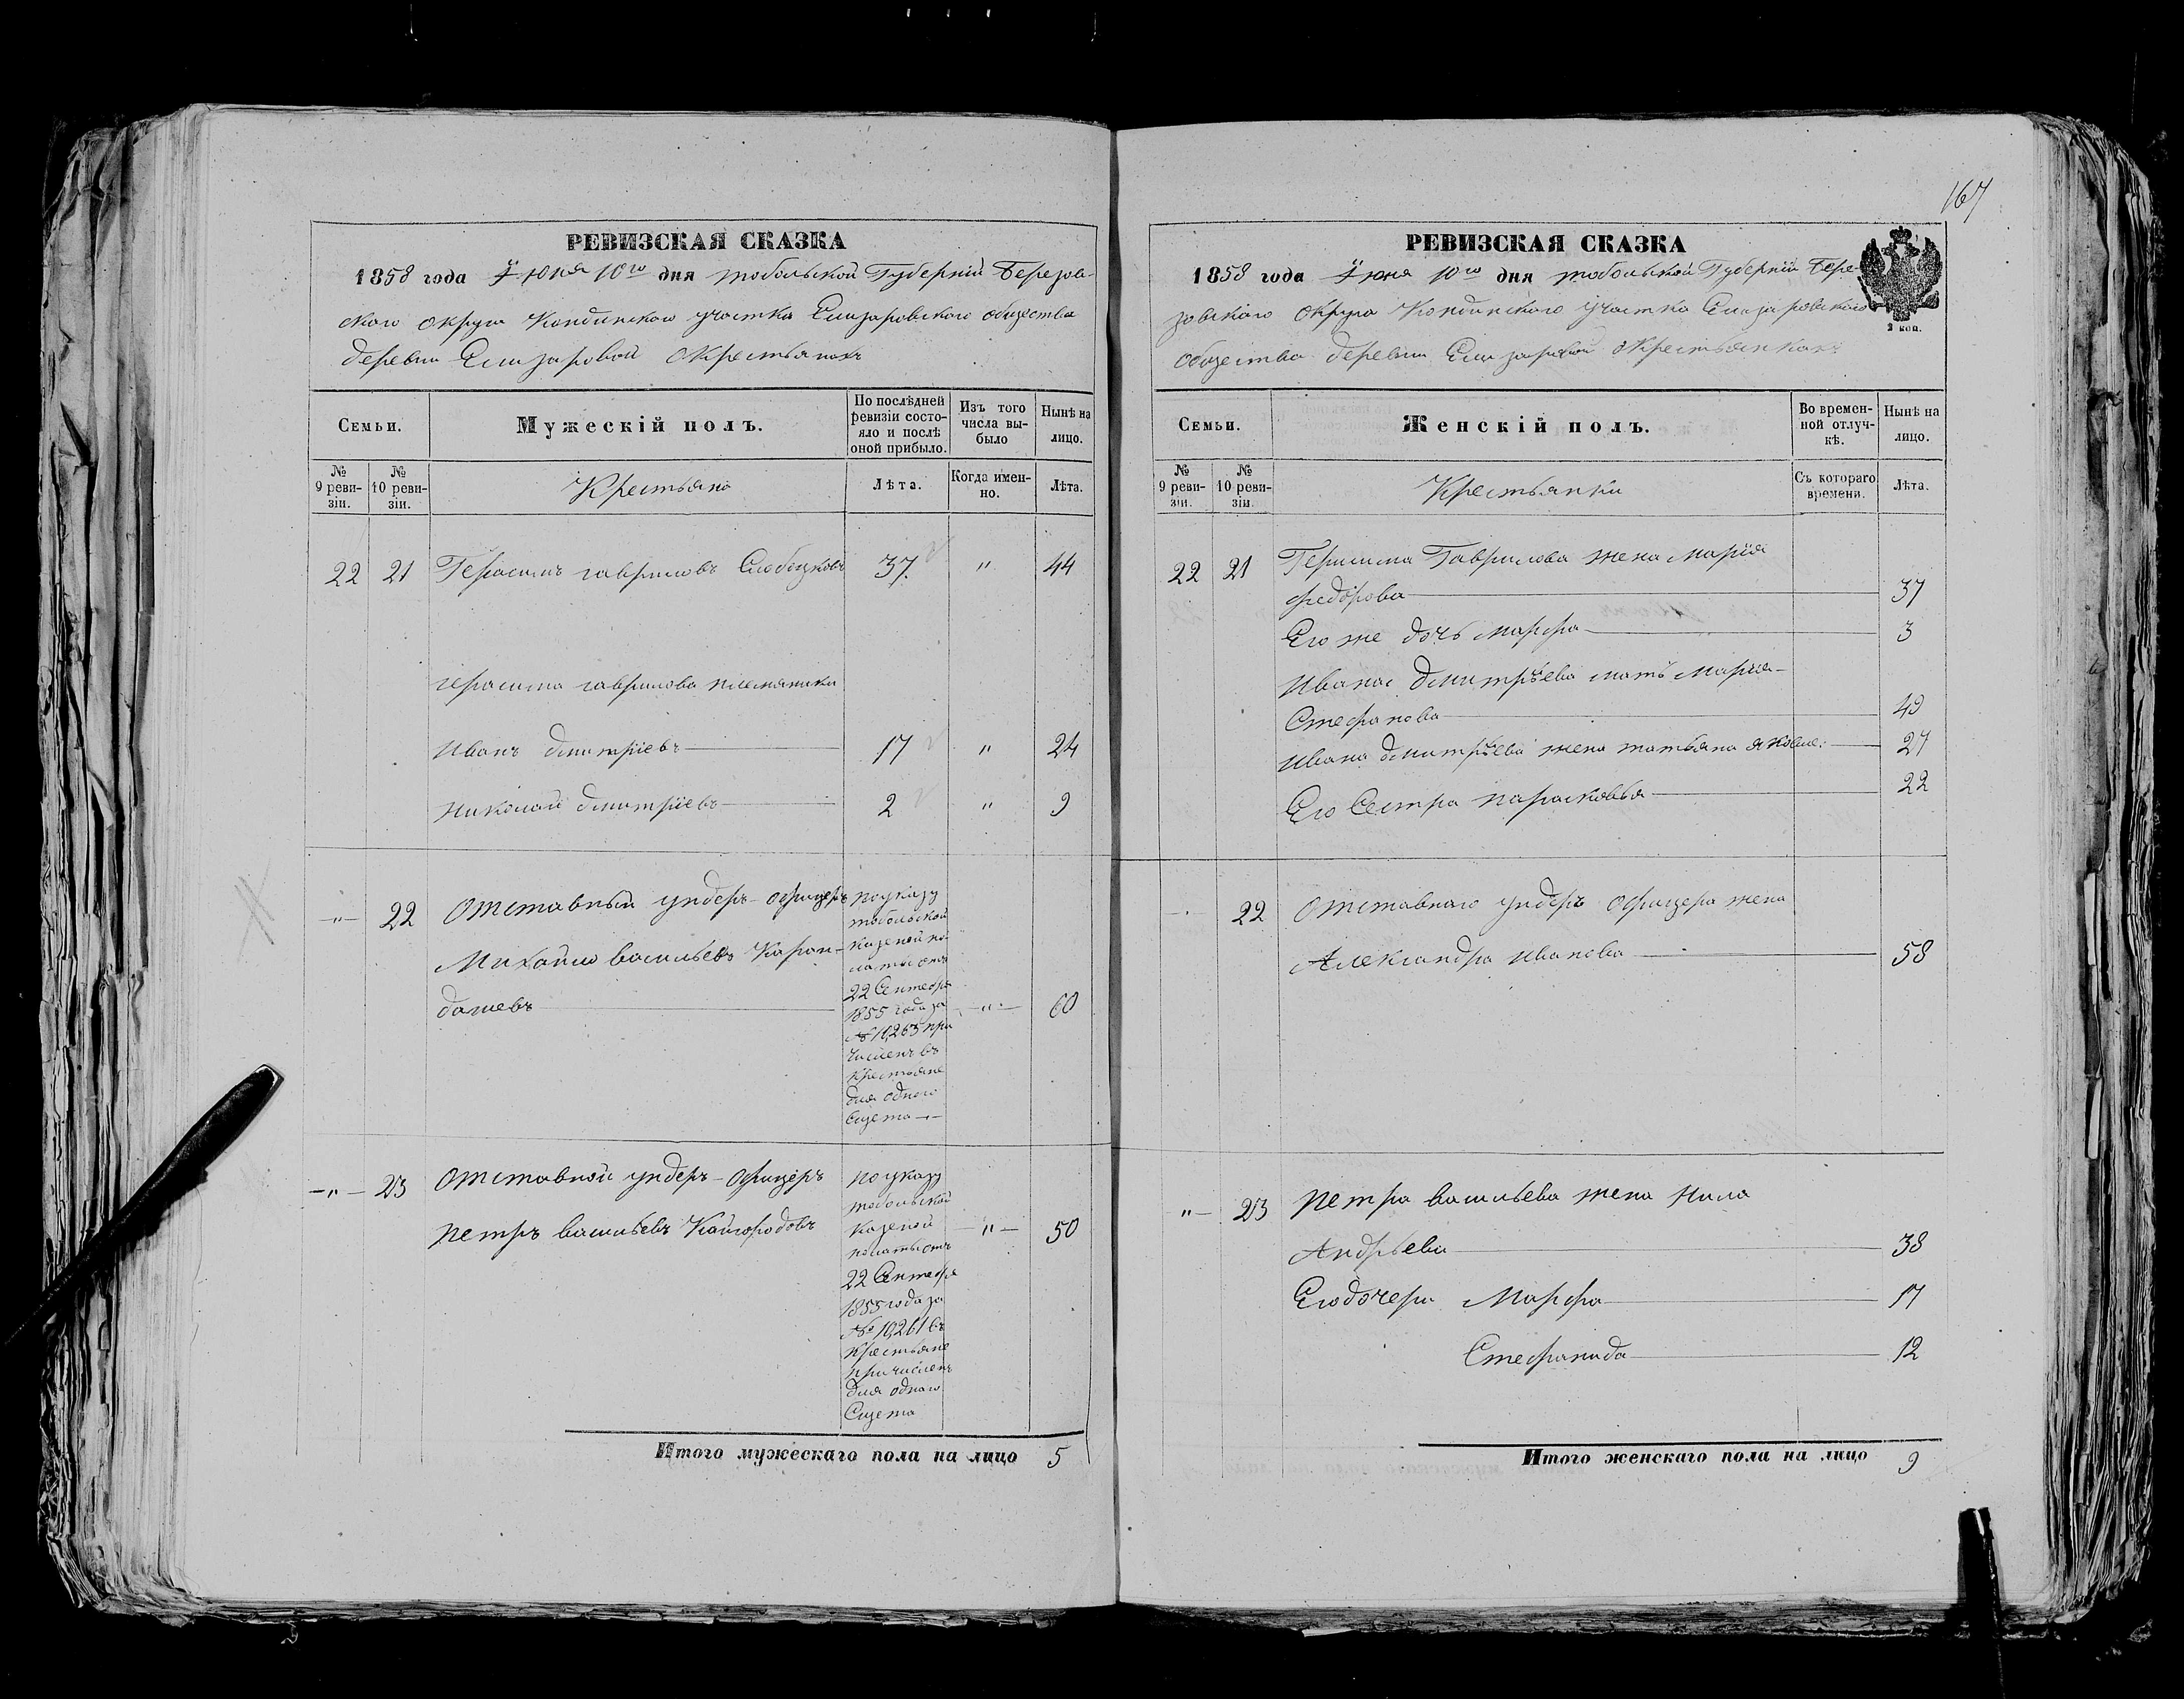 167
РЕВИЗСКАЯ СКАЗКА
1858 года Іюня 10го дня Тобольской Губерніи Березов-
скаго округа Кондинскаго участка Елизаровскаго общества
деревни Елизаровой о Крестьянахъ
Семьи.
Мужескій полъ.
По послѣдней ревизіи состо-
яло и послѣ оной прибыло.
Изъ того числа вы-
было
Нынѣ на лицо.
№ 9 реви-
зіи.
№ 10 реви-
зіи.
Крестьяне
Лѣта.
Когда имен-
но.
Лѣта.
22 21 Герасимъ Гавриловъ 37. " 44
Герасима Гаврилова племяники
Иванъ Дмитріевъ 17 " 24
Николай Дмитріевъ 2 " 9
-"- 22 Отставный ундеръ-офицеръ
Михайло Васильевъ Каран-
дашевъ -"- 60
по указу
тобольской
казеной па-
латы отъ
22 Сентебря
1855 года за
№ 10,263 при
численъ въ
крестьяне
для одного
Счета
-"- 23 Отставной ундеръ-офицеръ
Петръ Васильевъ Кайгородовъ -"- 50
по указу
тобольской
казеной
палаты отъ
22 Сентебря
1855 года за
№ 10,261 въ
крестьяне
причисленъ
для однаго
Счета
Итого мужескаго пола на лицо 5
РЕВИЗСКАЯ СКАЗКА
1858 года Іюня 10го дня Тобольской Губерніи Бере-
зовскаго Округа Кондинскаго Участка Елизаровскаго
общества деревни Елизаровой о Крестьянкахъ
2 коп.
Семьи.
Женскій полъ.
Во времен-
ной отлуч-
кѣ.
Нынѣ на лицо.
№ 9 реви-
зіи.
№ 10 реви-
зіи.
Крестьянки
Съ котораго времени.
Лѣта.
22 21 Герасима Гаврилова жена Марія
Федорова 37
Его же дочь Марфа 3
Ивана Дмитрѣева мать Марія
Стефанова 49
Ивана Дмитрѣева жена Татьяна Яковле: 27
Его Сестра Парасковья 22
22 Отставнаго ундеръ офицера жена
Александра Иванова 58
"- 23 Петра Васильева жена
Андрѣева 38
Его дочери Марфа 17
Стефанида 12
Итого женскаго пола на лицо 9